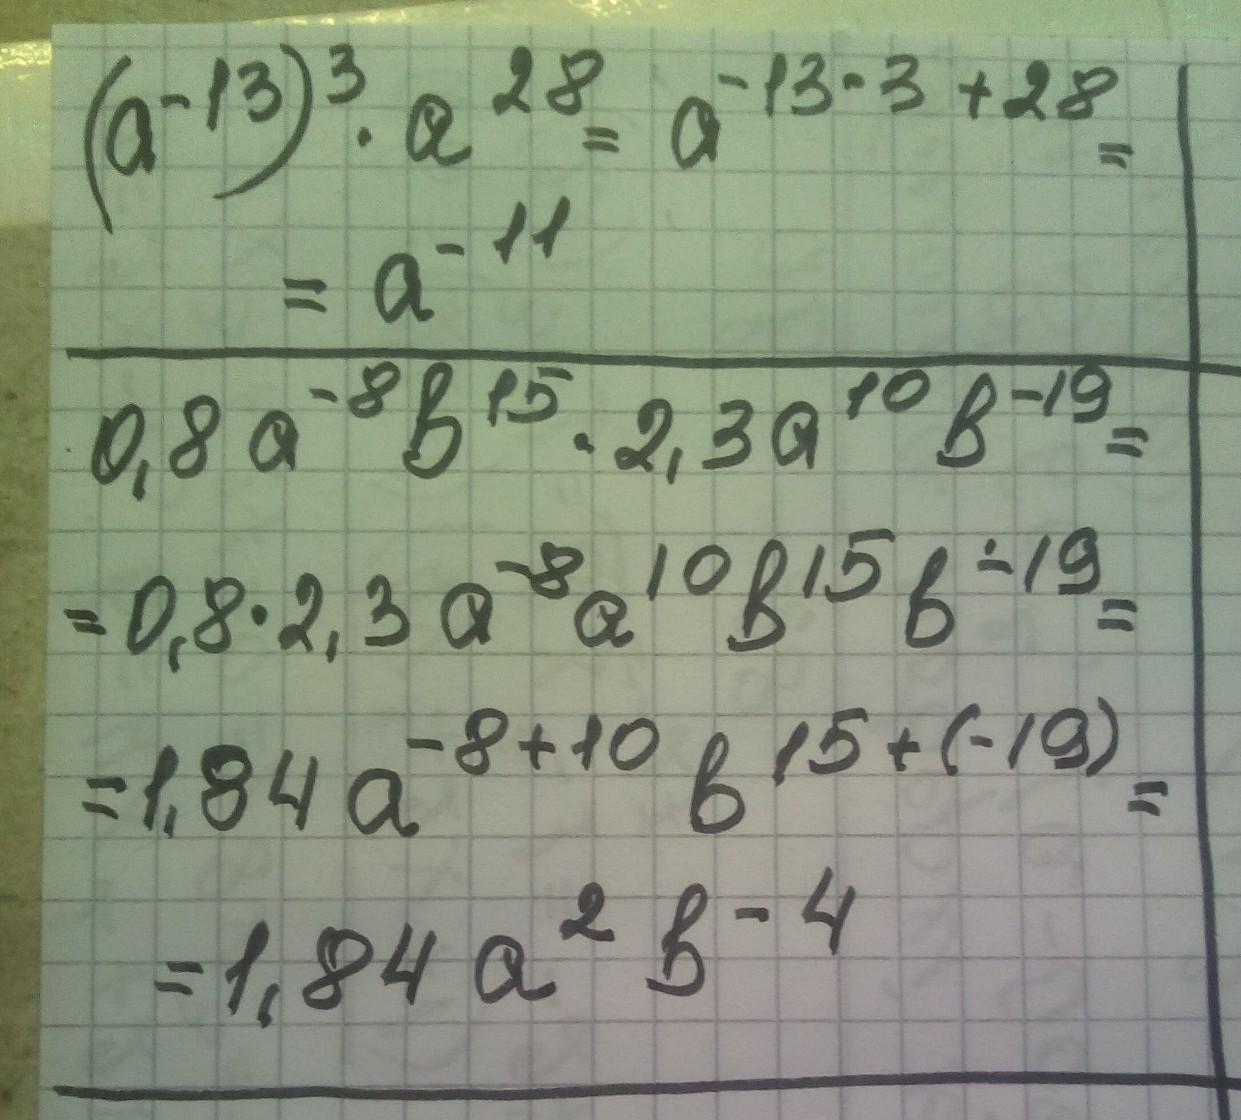 (a⁻¹³)³ · a²⁸ = a⁻¹³·³⁺²⁸ =
= a⁻¹¹
0,8a⁻⁸b¹⁵ · 2,3a¹⁰b⁻¹⁹ =
= 0,8·2,3a⁻⁸a¹⁰b¹⁵b⁻¹⁹ =
= 1,84a⁻⁸⁺¹⁰b¹⁵⁺⁽⁻¹⁹⁾ =
= 1,84a²b⁻⁴